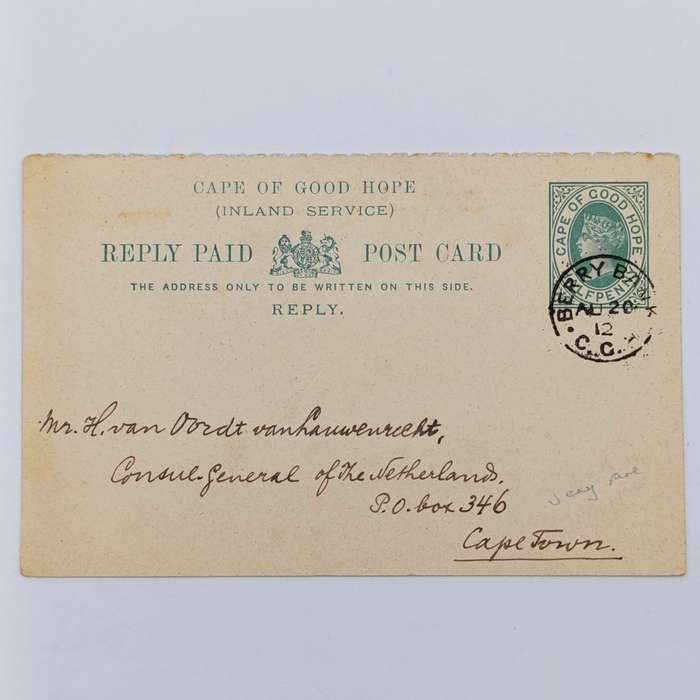 CAPE OF GOOD HOPE
(INLAND SERVICE)
REPLY PAID POST CARD
THE ADDRESS ONLY TO BE WRITTEN ON THIS SIDE.
REPLY.
CAPE OF GOOD HOPE
BERRY BANK
AU 20
12
C.G.H
Mr. H. van Oordt van Lauwenrecht,
Consul-General of The Netherlands.
P.O. box 346
Cape Town.
very rare